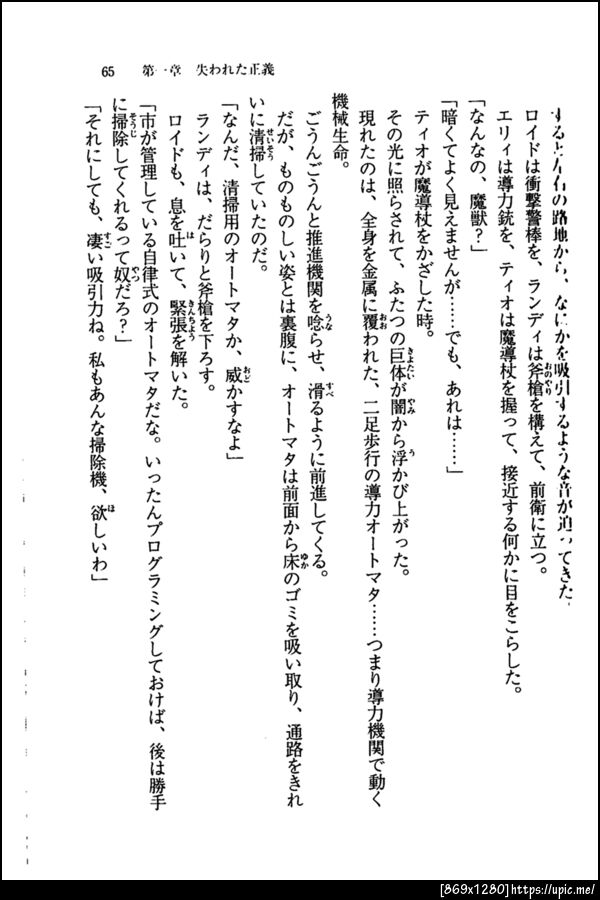 65　第一章　失われた正義
すると左右の路地から、なにかを吸引するような音が迫ってきた。
ロイドは衝撃警棒を、ランディは斧槍を構えて、前衛に立つ。
エリィは導力銃を、ティオは魔導杖を握って、接近する何かに目をこらした。
「なんなの、魔獣？」
「暗くてよく見えませんが……でも、あれは……」
ティオが魔導杖をかざした時。
その光に照らされて、ふたつの巨体が闇から浮かび上がった。
現れたのは、全身を金属に覆われた、二足歩行の導力オートマタ……つまり導力機関で動く
機械生命。
ごうんごうんと推進機関を唸らせ、滑るように前進してくる。
だが、ものものしい姿とは裏腹に、オートマタは前面から床のゴミを吸い取り、通路をきれ
いに清掃していたのだ。
「なんだ、清掃用のオートマタか、威かすなよ」
ランディは、だらりと斧槍を下ろす。
ロイドも、息を吐いて、緊張を解いた。
「市が管理している自律式のオートマタだな。いったんプログラミングしておけば、後は勝手
に掃除してくれるって奴だろ？」
「それにしても、凄い吸引力ね。私もあんな掃除機、欲しいわ」
[869x1280]https://upic.me/